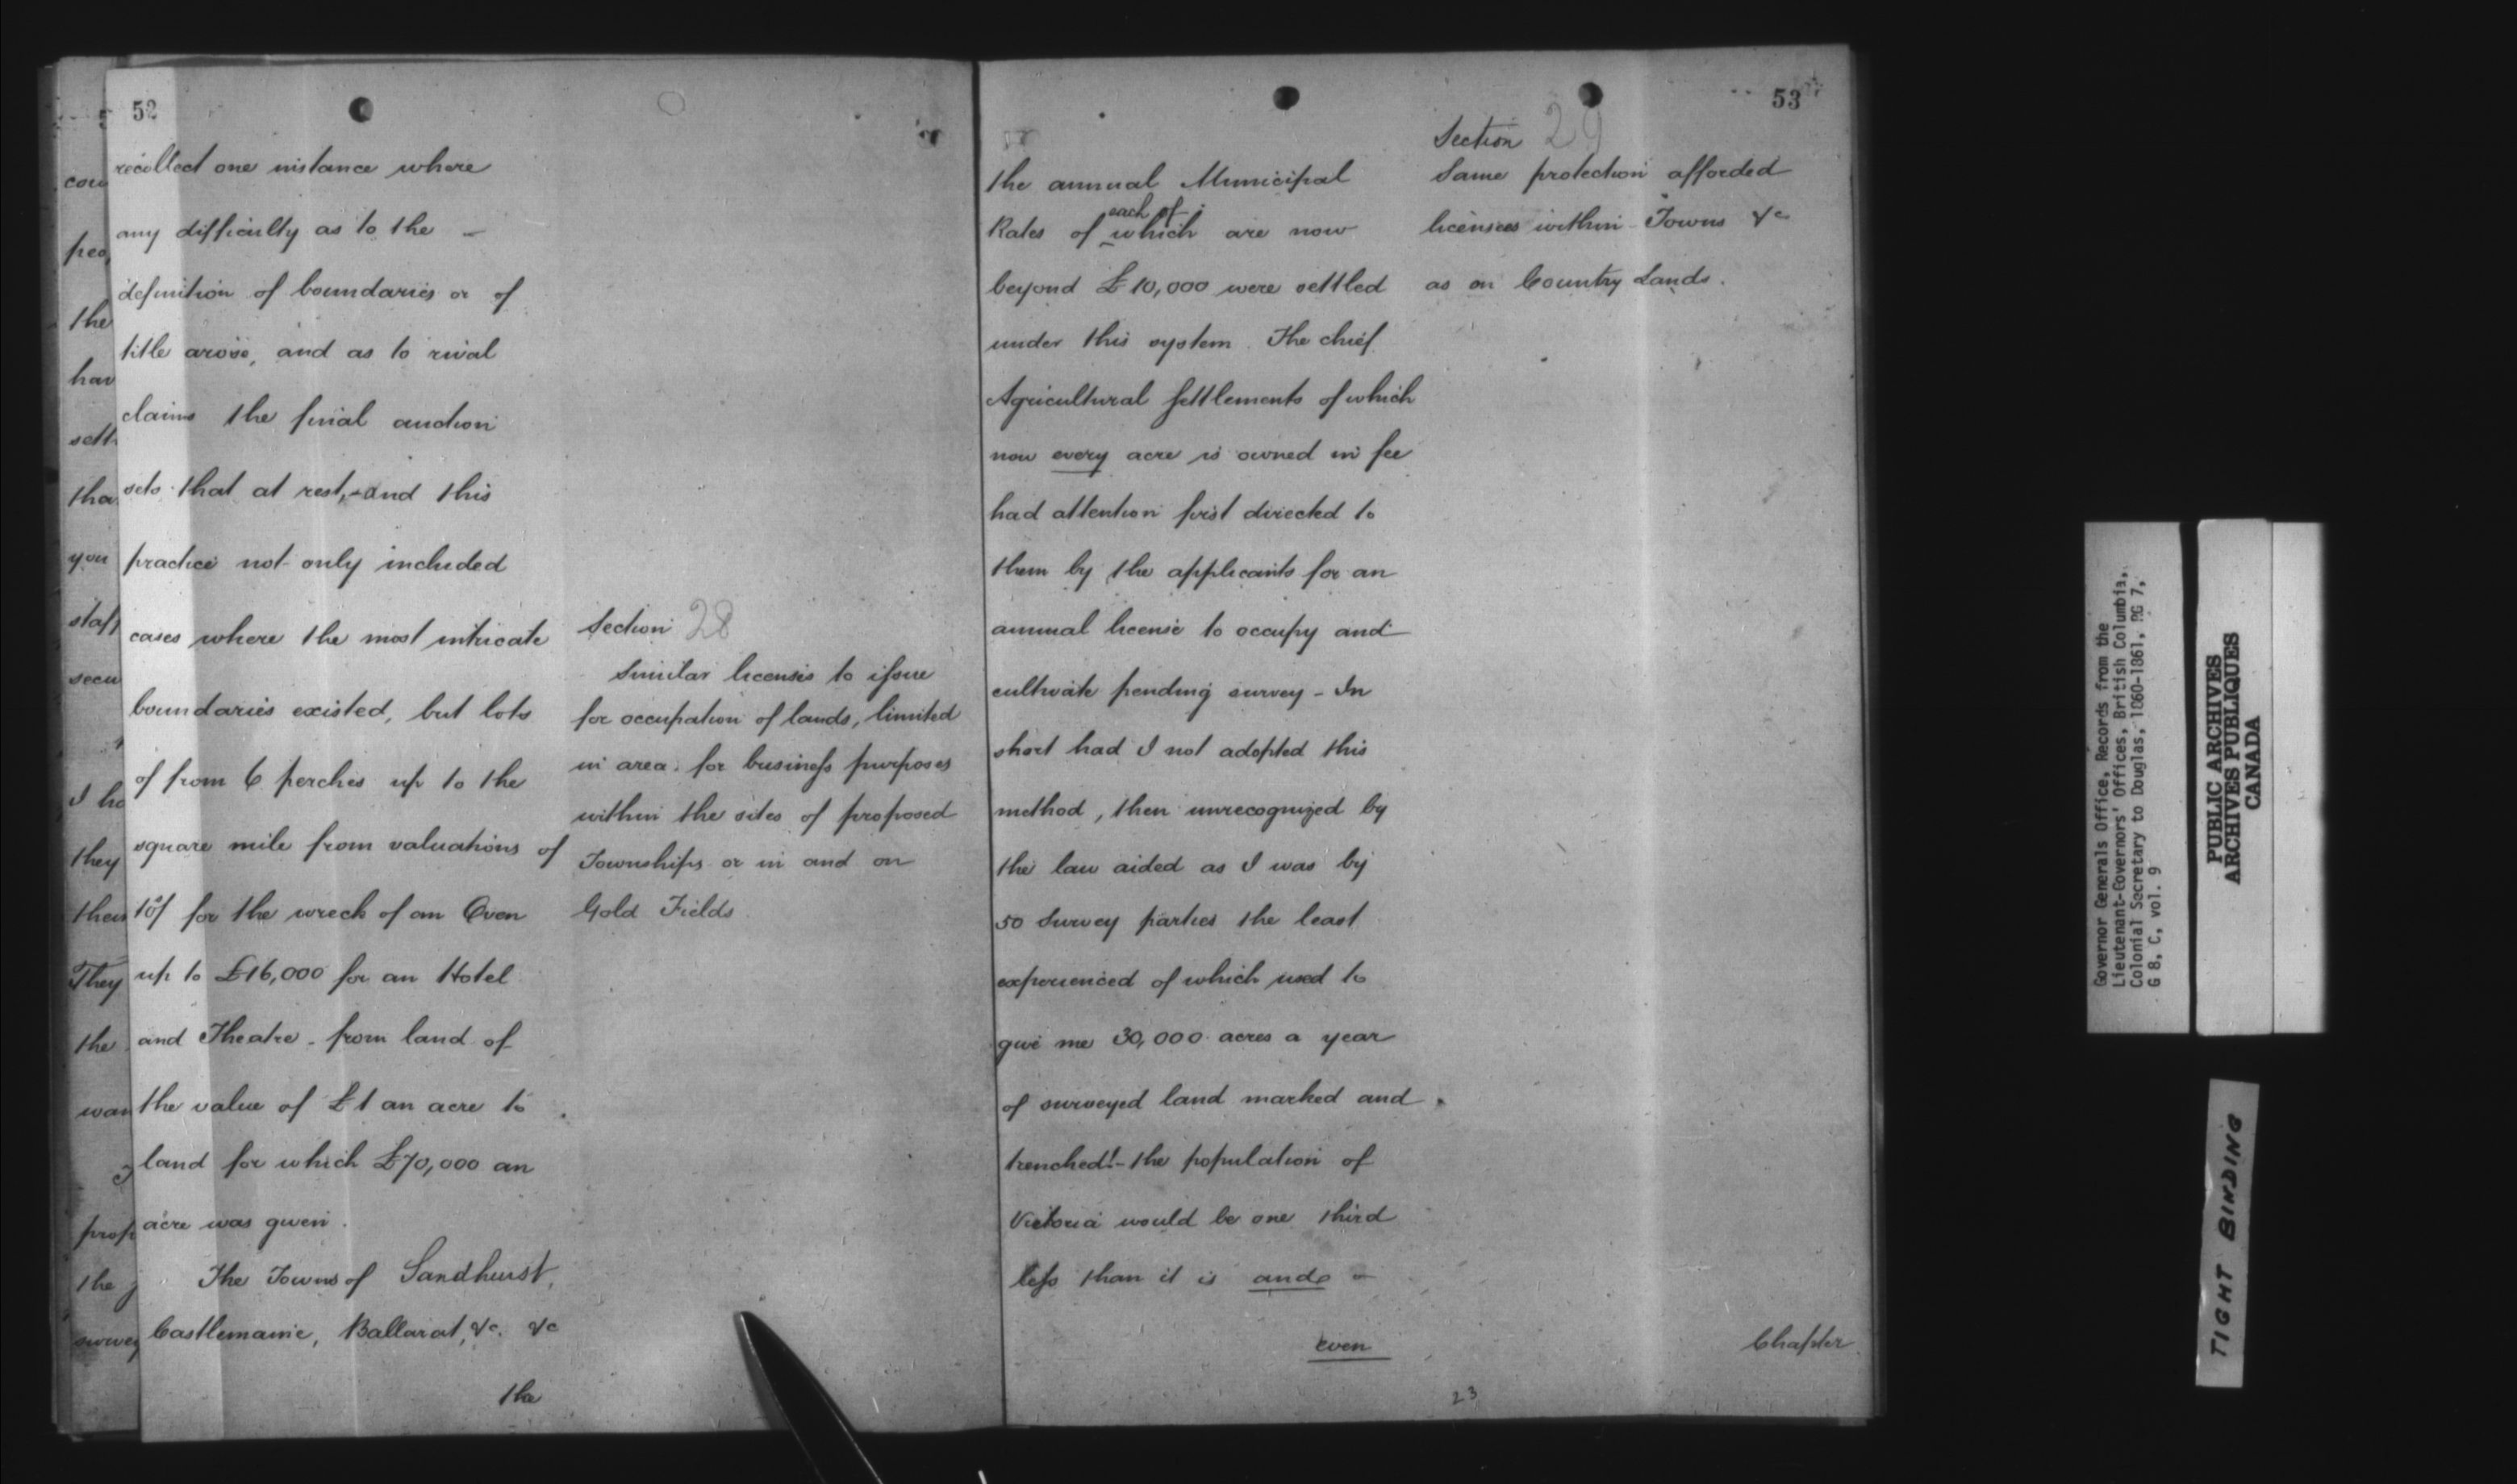 52
recollect one instance where
any difficulty as to the -
definition of boundaries or of
title arose, and as to rival
claims the final auction
sets that at rest, - and this
practice not only included
cases where the most intricate
boundaries existed, but lots
of from 6 perches up to the
square mile from valuations of
10/ for the wreck of an Oven
up to £16,000 for an Hotel
and Theatre - from land of
the value of £1 an acre to
land for which £70,000 an
acre was given.
The Towns of Sandhurst,
Castlemaine, Ballarat, &c. &c
the
Section 28
Similar licenses to issue
for occupation of lands, limited
in area. for business purposes
within the sites of proposed
Townships or in and on
Gold Fields
cou
peo
the
hav
sett
tha
you
staff
secu
I ha
they
them
They
the
wan
prop
the
survey
53
the annual Municipal
Rates of each of which are now
beyond £10,000 were settled
under this system. The chief
Agricultural Settlements of which
now every acre is owned in fee
had attention first directed to
them by the applicants for an
annual license to occupy and
cultivate pending survey - In
short had I not adopted this
method, then unrecognized by
the law aided as I was by
50 Survey parties the least
experienced of which used to
give me 30,000 acres a year
of surveyed land marked and
trenched! - the population of
Victoria would be one third
less than it is and -
even
Section 29
Same protection afforded
licensees within Towns &c
as on Country Lands.
Chapter
23
Governor Generals Office, Records from the
Lieutenant-Governors' Offices, British Columbia,
Colonial Secretary to Douglas, 1860-1861, RG 7,
G 8, C, vol. 9
PUBLIC ARCHIVES
ARCHIVES PUBLIQUES
CANADA
TIGHT BINDING